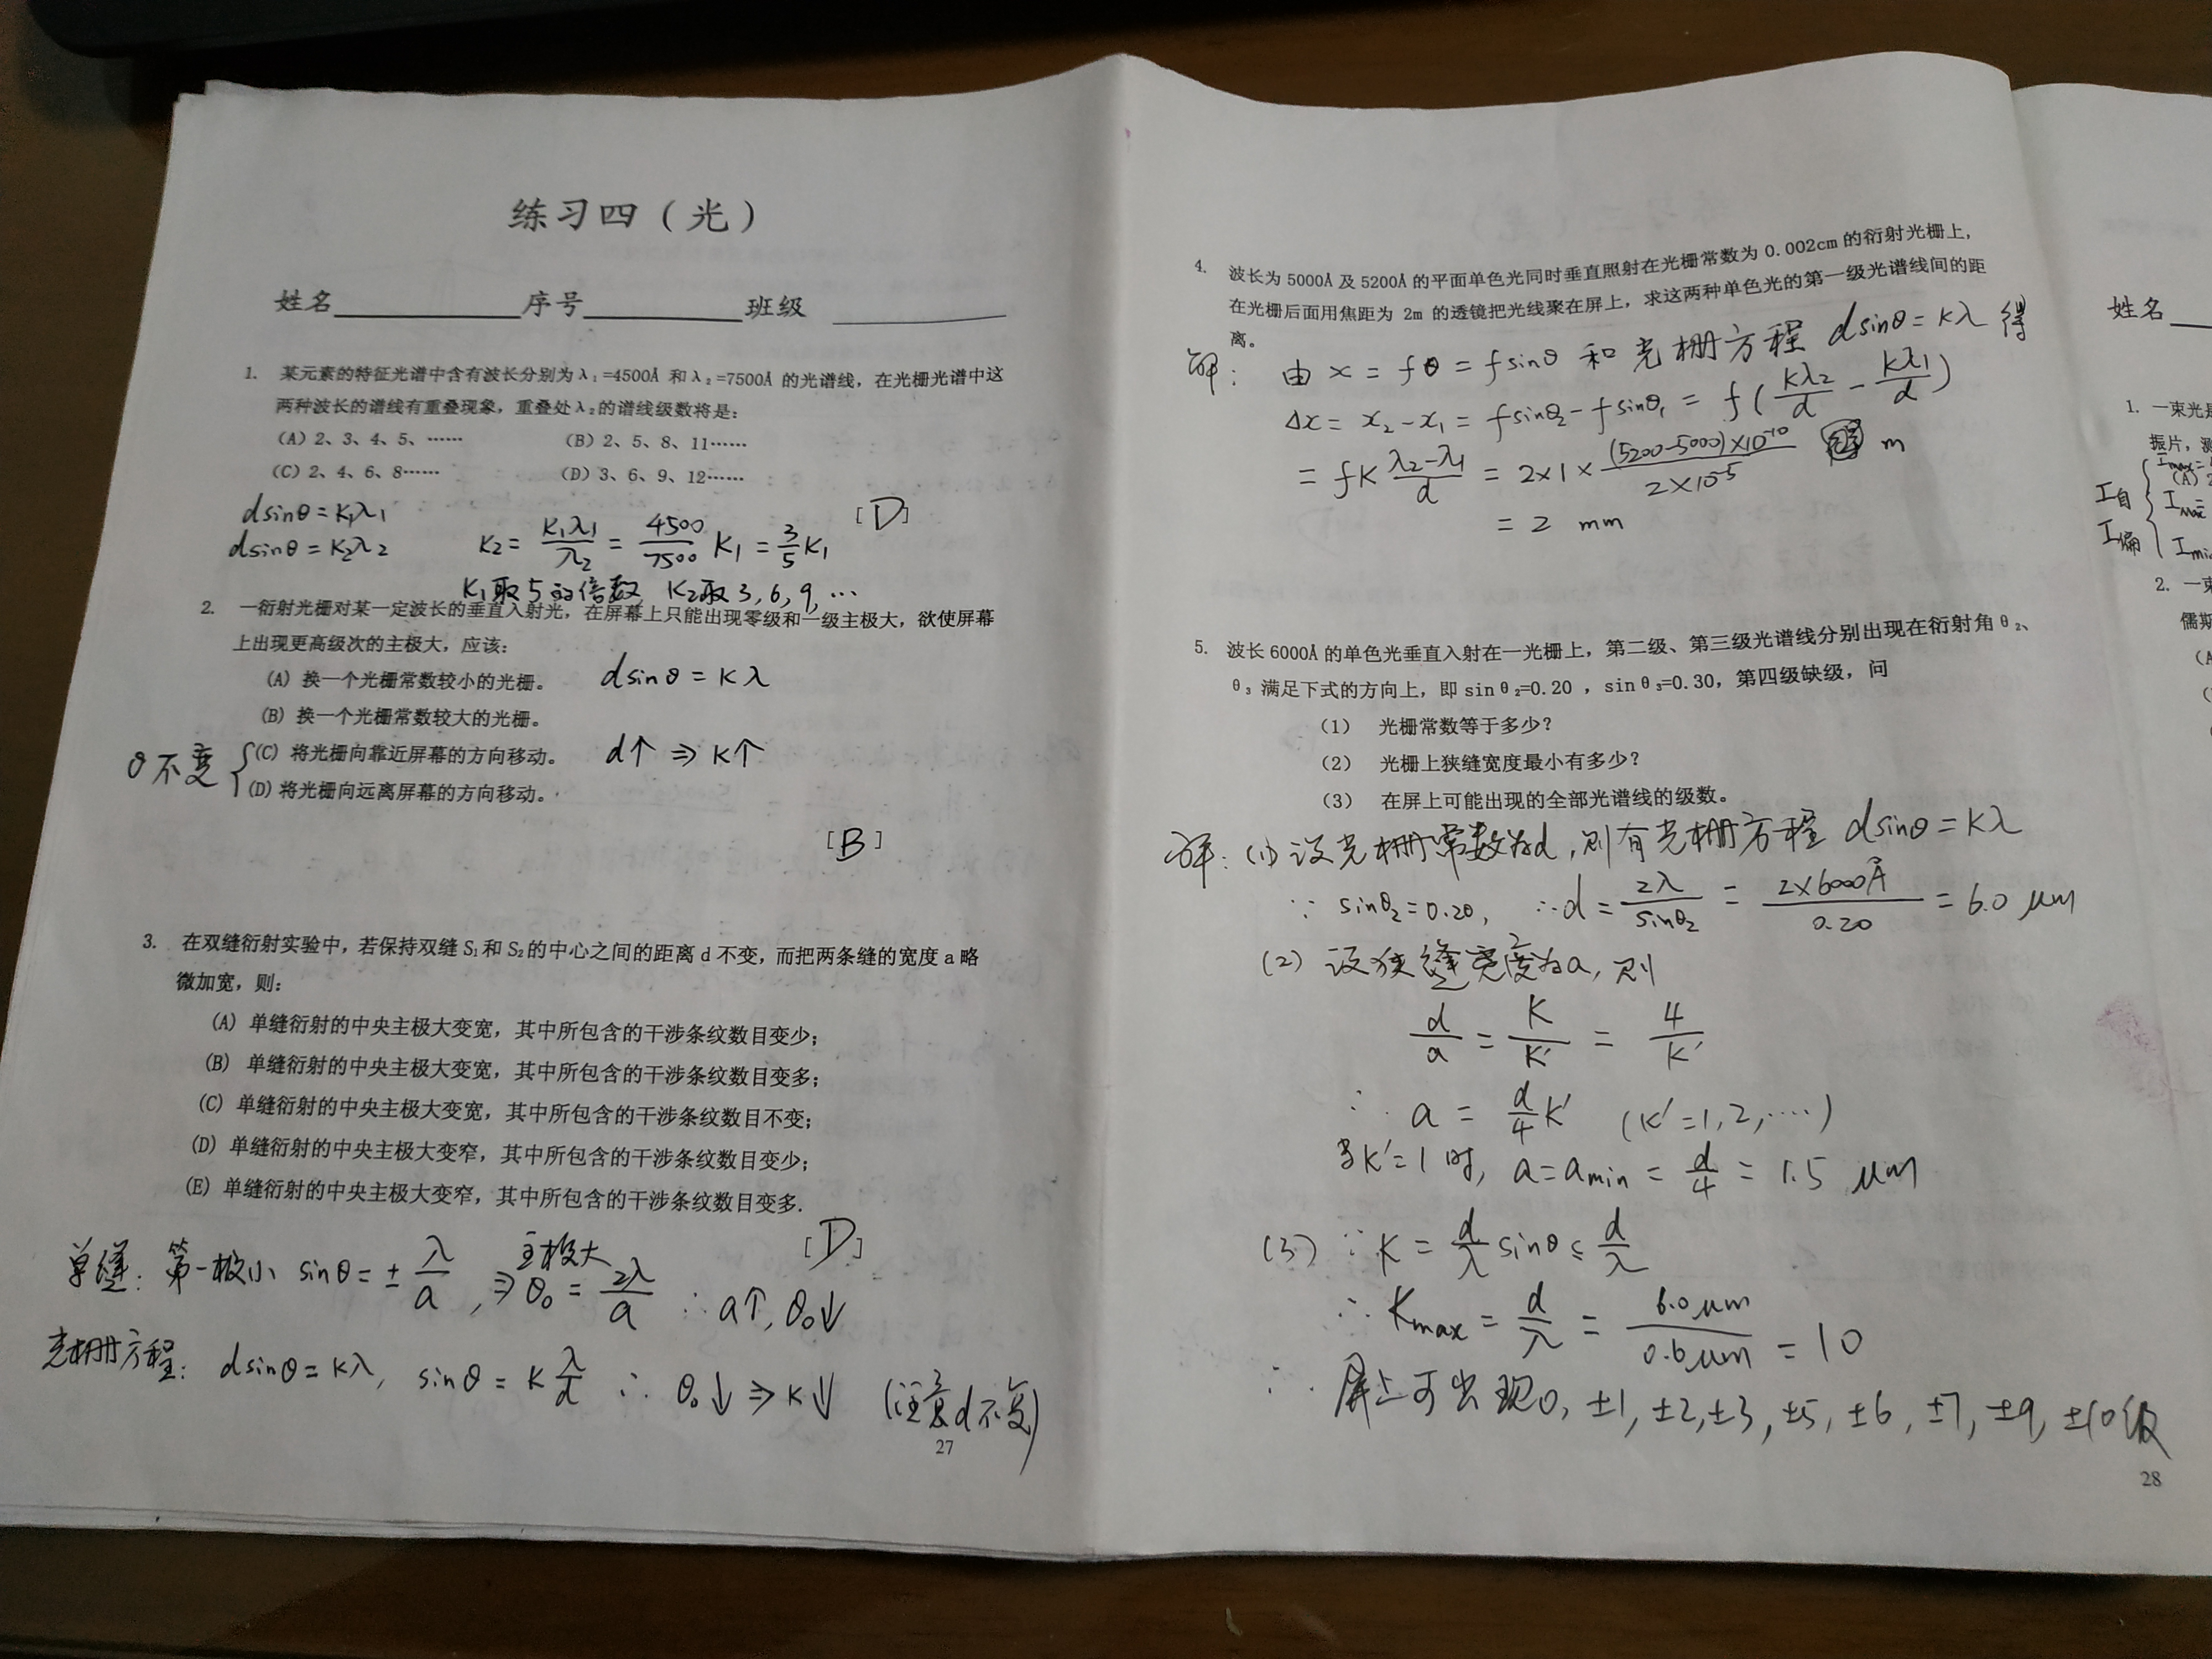 练习四（光）
姓名 序号 班级
1. 某元素的特征光谱中含有波长分别为λ₁=4500Å 和λ₂=7500Å 的光谱线，在光栅光谱中这
两种波长的谱线有重叠现象，重叠处λ₂的谱线级数将是：
（A）2、3、4、5、…… （B）2、5、8、11……
（C）2、4、6、8…… （D）3、6、9、12……
[D]
dsinθ=K₁λ₁
dsinθ=K₂λ₂ K₂=K₁λ₁/λ₂=4500/7500 K₁=3/5 K₁
K₁取5的倍数 K₂取3,6,9,…
2. 一衍射光栅对某一定波长的垂直入射光，在屏幕上只能出现零级和一级主极大，欲使屏幕
上出现更高级次的主极大，应该：
(A) 换一个光栅常数较小的光栅。 dsinθ=Kλ
(B) 换一个光栅常数较大的光栅。
(C) 将光栅向靠近屏幕的方向移动。 d↑⇒K↑
θ不变 {
(D) 将光栅向远离屏幕的方向移动。
[B]
3. 在双缝衍射实验中，若保持双缝 S₁和 S₂的中心之间的距离 d 不变，而把两条缝的宽度 a 略
微加宽，则：
(A) 单缝衍射的中央主极大变宽，其中所包含的干涉条纹数目变少；
(B) 单缝衍射的中央主极大变宽，其中所包含的干涉条纹数目变多；
(C) 单缝衍射的中央主极大变宽，其中所包含的干涉条纹数目不变；
(D) 单缝衍射的中央主极大变窄，其中所包含的干涉条纹数目变少；
(E) 单缝衍射的中央主极大变窄，其中所包含的干涉条纹数目变多.
[D]
单缝：第一极小 sinθ=±λ/a，⇒主极大 θ₀=2λ/a ∴a↑,θ₀↓
光栅方程：dsinθ=Kλ, sinθ=Kλ/d ∴θ₀↓⇒K↓ (注意d不变)
27
4. 波长为 5000Å 及 5200Å 的平面单色光同时垂直照射在光栅常数为 0.002cm 的衍射光栅上，
在光栅后面用焦距为 2m 的透镜把光线聚在屏上，求这两种单色光的第一级光谱线间的距
离。
解： 由 x=fθ=fsinθ 和光栅方程 dsinθ=Kλ 得
Δx=x₂-x₁=fsinθ₂-fsinθ₁=f(Kλ₂/d-Kλ₁/d)
=fK(λ₂-λ₁)/d=2×1×(5200-5000)×10⁻¹⁰/2×10⁻⁵ m
=2 mm
5. 波长 6000Å 的单色光垂直入射在一光栅上，第二级、第三级光谱线分别出现在衍射角θ₂、
θ₃ 满足下式的方向上，即 sinθ₂=0.20 ，sinθ₃=0.30，第四级缺级，问
（1） 光栅常数等于多少？
（2） 光栅上狭缝宽度最小有多少？
（3） 在屏上可能出现的全部光谱线的级数。
解：(1)设光栅常数为d，则有光栅方程 dsinθ=Kλ
∵ sinθ₂=0.20, ∴d=2λ/sinθ₂=2×6000Å/0.20=6.0 μm
(2) 设狭缝宽度为a，则
d/a=K/K′=4/K′
∴ a=d/4 K′ (K′=1,2,……)
当K′=1时, a=amin=d/4=1.5 μm
(3) ∵K=d/λ sinθ≤d/λ
∴Kmax=d/λ=6.0μm/0.6μm=10
∴ 屏上可出现0, ±1, ±2, ±3, ±5, ±6, ±7, ±9, ±10级
28
姓名
1. 一束光是
振片，测
(A) 2
I自
I偏
Imax=
Imi
2. 一束
儒斯